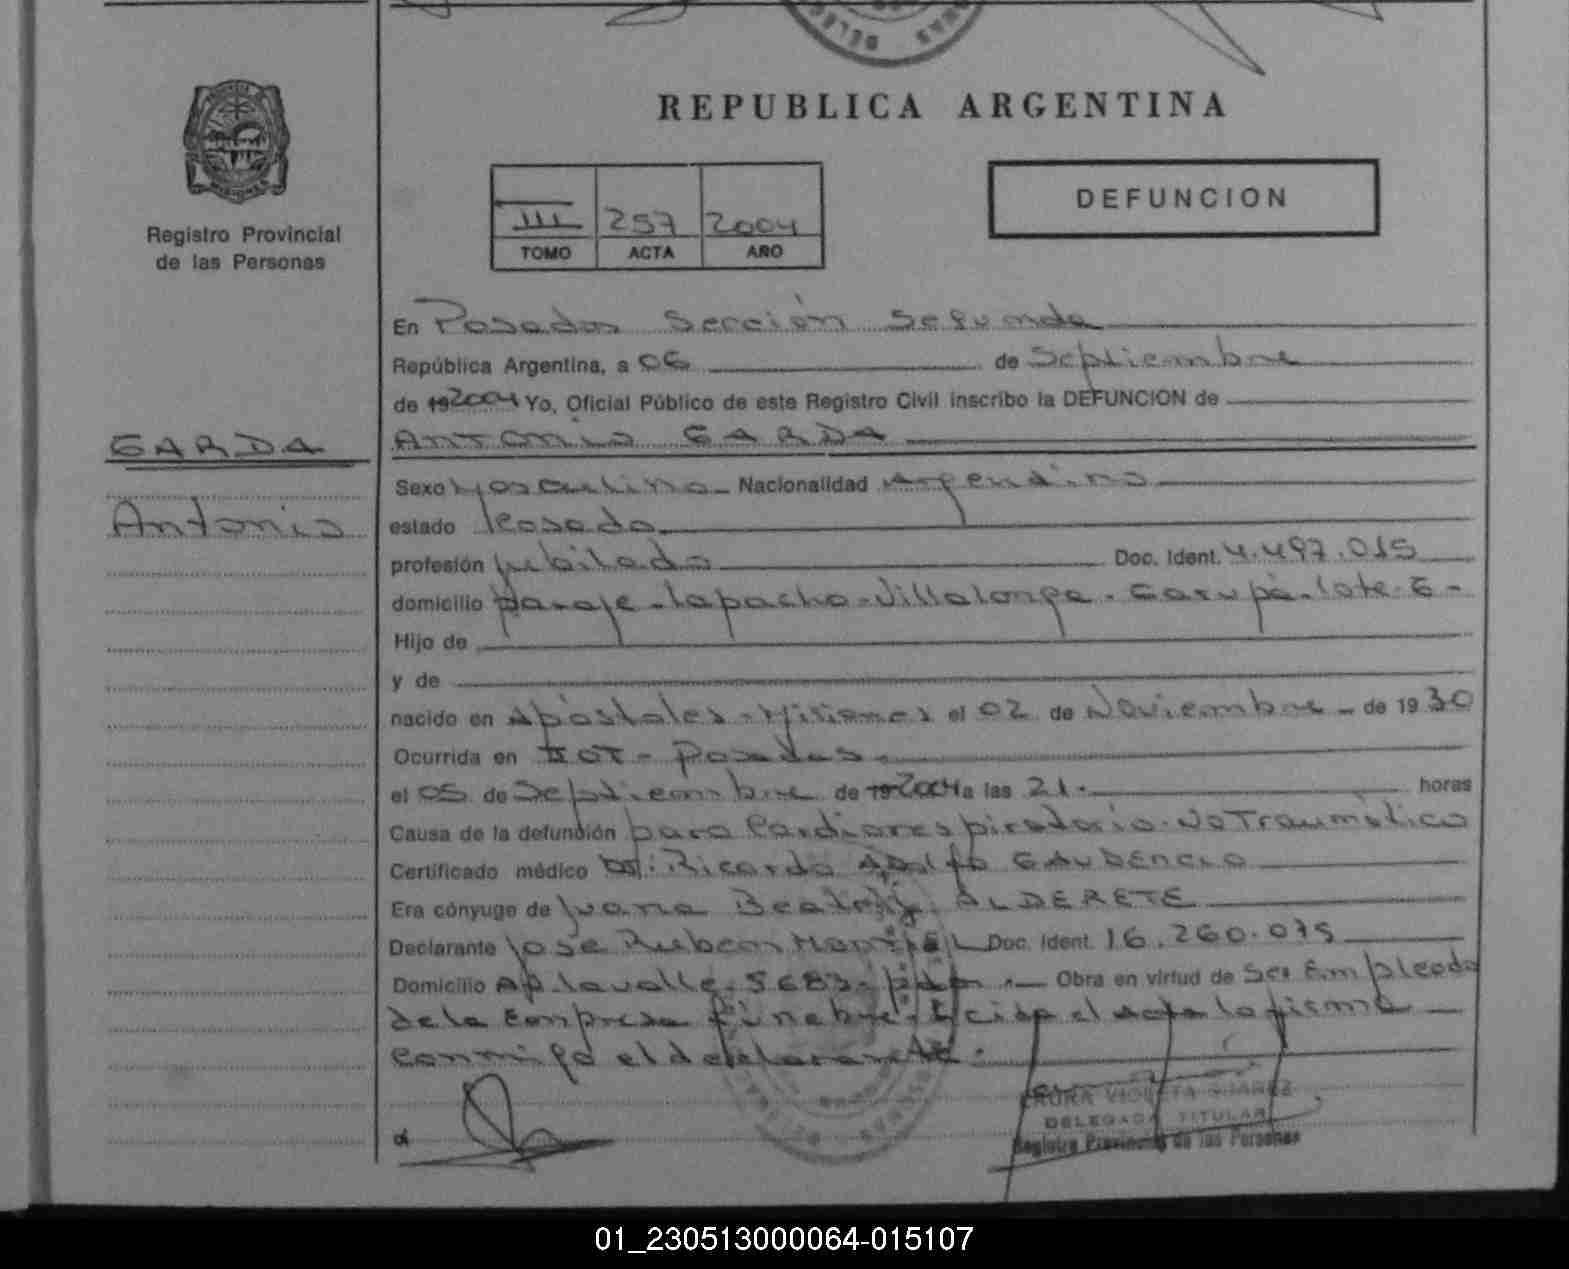 REPUBLICA ARGENTINA
Registro Provincial
de las Personas
III 257 2004
TOMO ACTA AÑO
DEFUNCION
En Posadas Sección Segunda
República Argentina, a 06 de Septiembre
de 192004 Yo, Oficial Público de este Registro Civil inscribo la DEFUNCION de
GARDA
Antonio
ANTONIO GARDA
Sexo Masculino Nacionalidad Argentino
estado Casado
profesión jubilado Doc. Ident. 4.497.015
domicilio paraje-lapacho-Villalonga-Garupá-lote-6-
Hijo de
y de
nacido en Apóstoles-Misiones el 02 de Noviembre - de 1930
Ocurrida en Posadas-
el 05 de Septiembre de 192004 a las 21.- horas
Causa de la defunción paro Cardiorespiratorio-No Traumático
Certificado médico Dr: Ricardo Adolfo GAUDENCIO
Era cónyuge de Juana Beatriz ALDERETE
Declarante José Ruben Doc. Ident. 16.260.075
Domicilio Av. lavalle-5683- Obra en virtud de Ser Empleado
de la Empresa fúnebre- el acta la firma
Conmigo el declarante.-
LAURA VIOLETA SUAREZ
DELEGADA TITULAR
Registro Provincial de las Personas
01_230513000064-015107